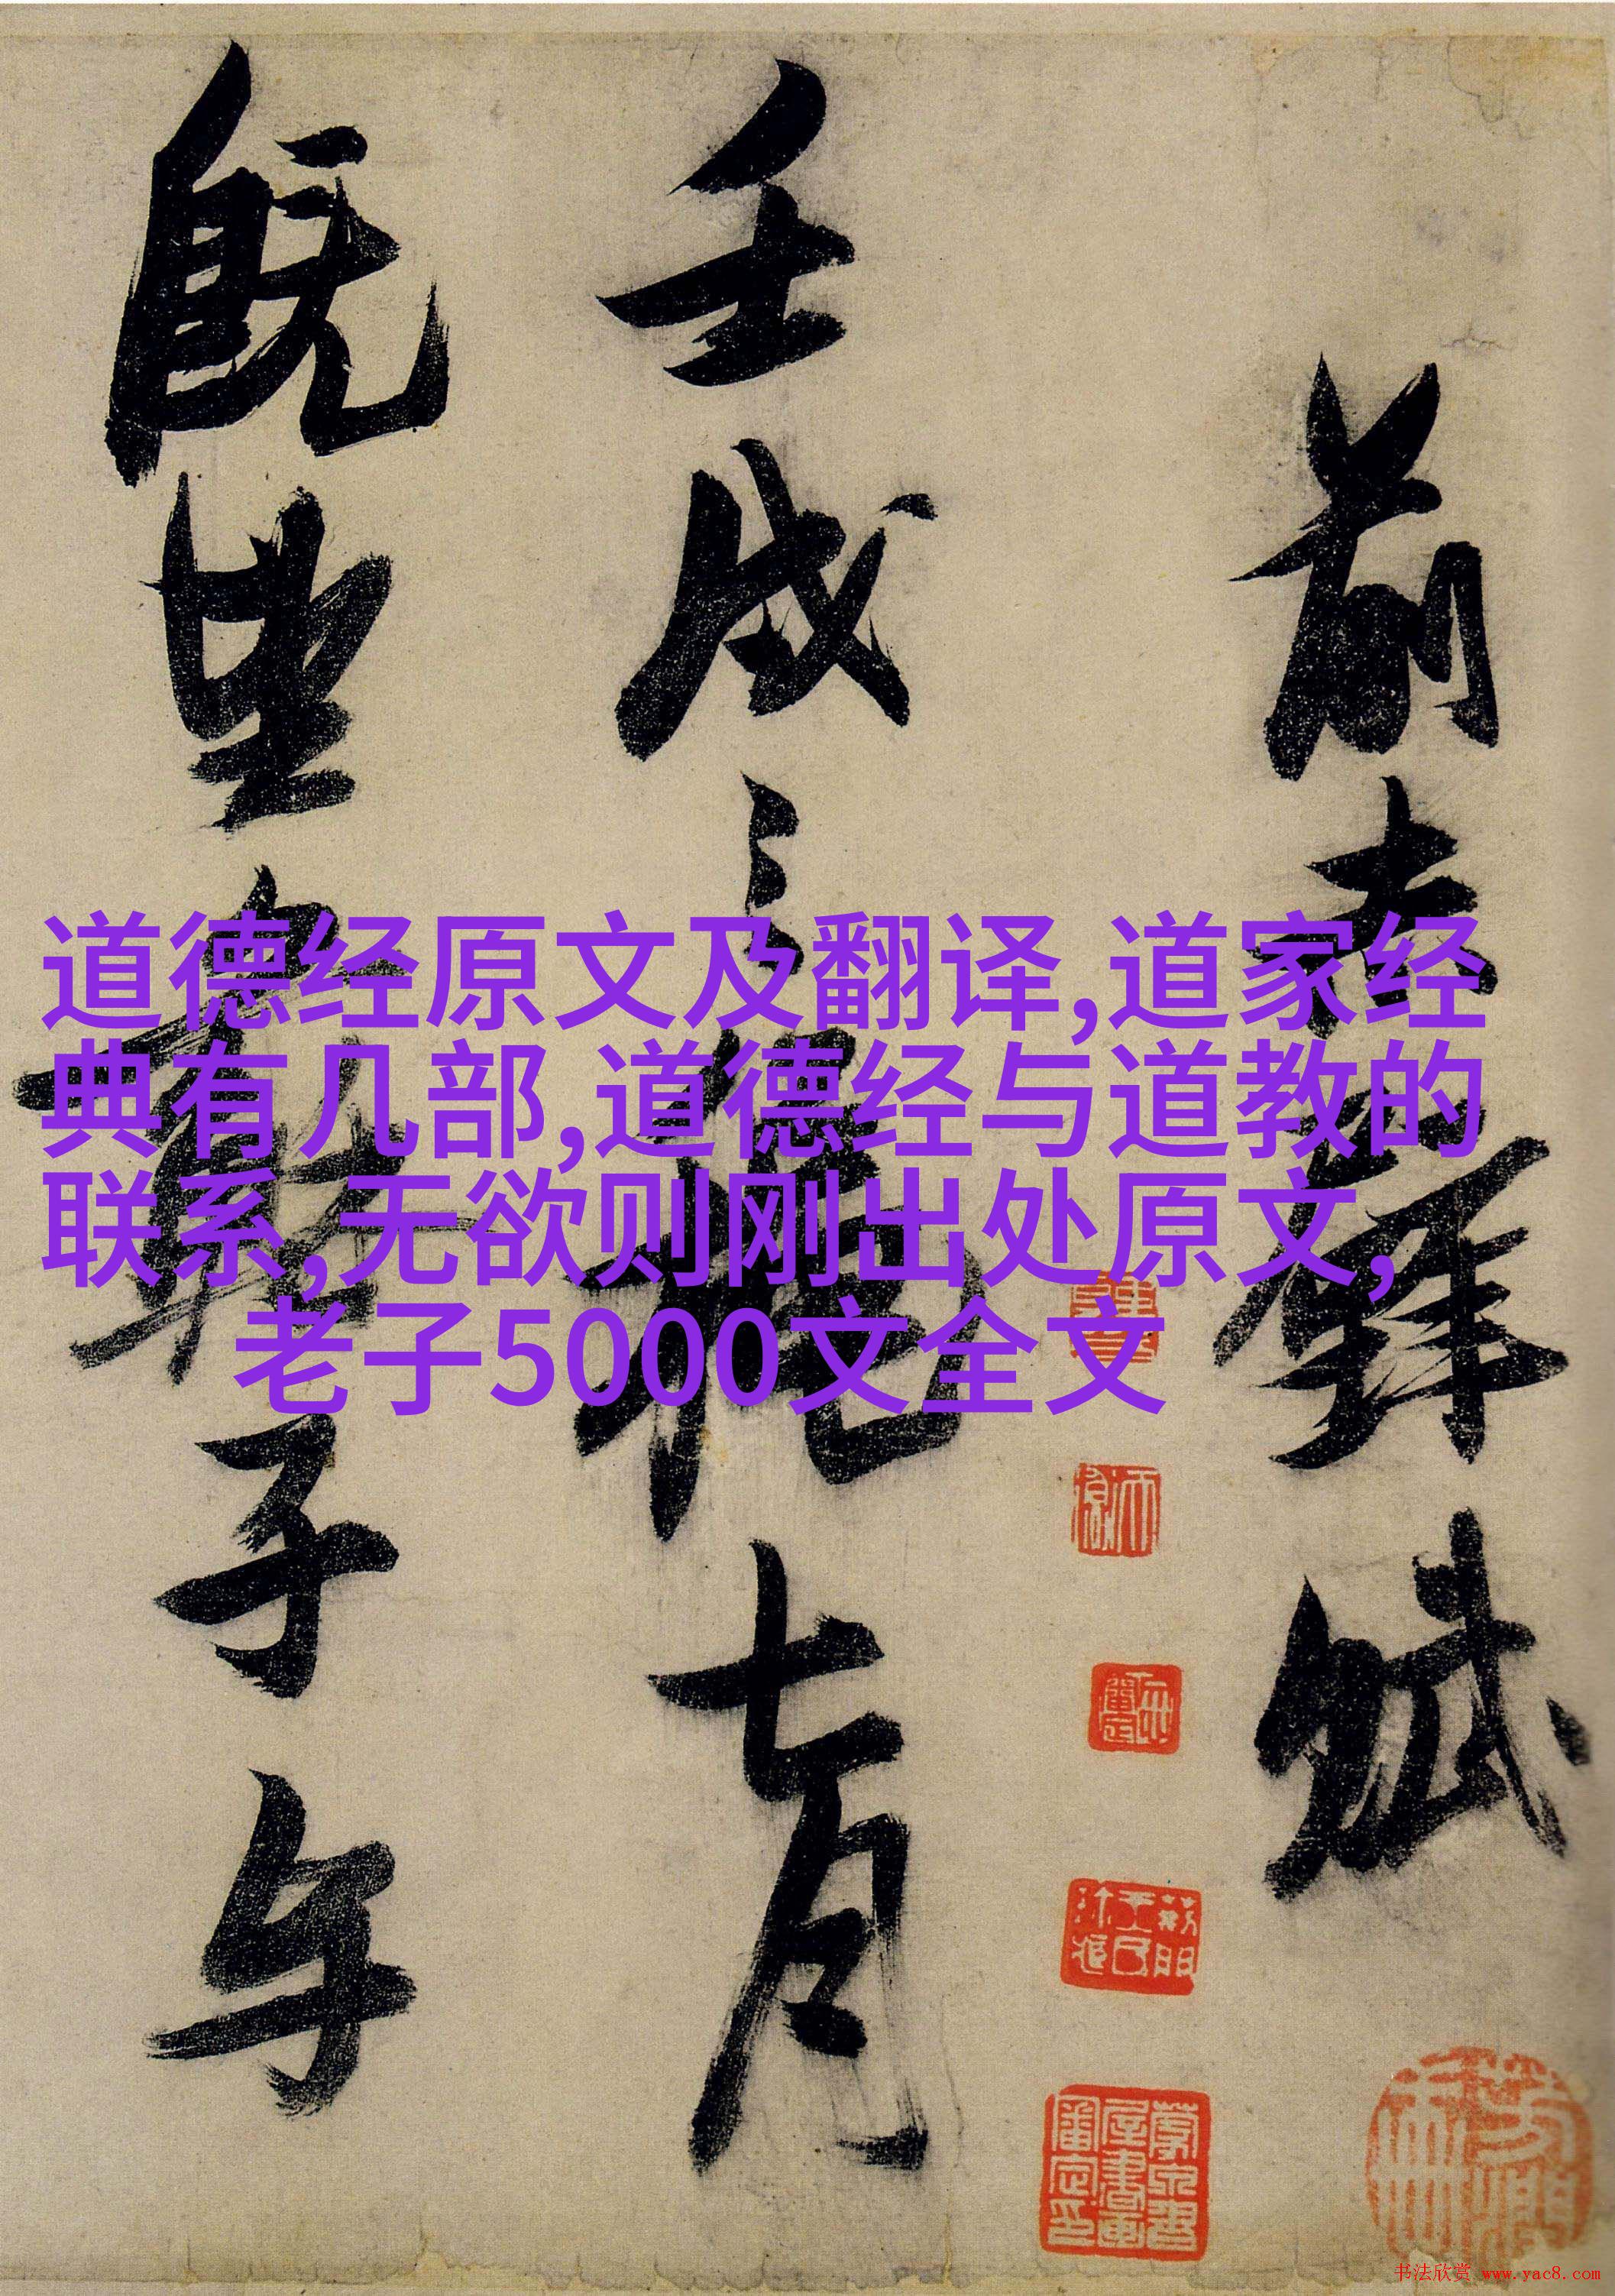 前赤壁賦
壬戌之穐七月
既望蘇子与
道德经原文及翻译,道家经
典有几部,道德经与道教的
联系,无欲则刚出处原文,
老子5000文全文
书法欣赏 www.yac8.com